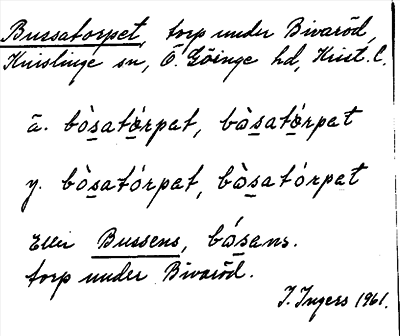 Bussatorpet, torp under Bivaröd,
Knislinge sn, Ö. Göinge hd, Krist. l.
ä. bòsatórpat, bòsatórpat
y. bòsatórpat, bòsatórpat
Eller Bussens, bósans.
torp under Bivaröd.
I. Ingers 1961.